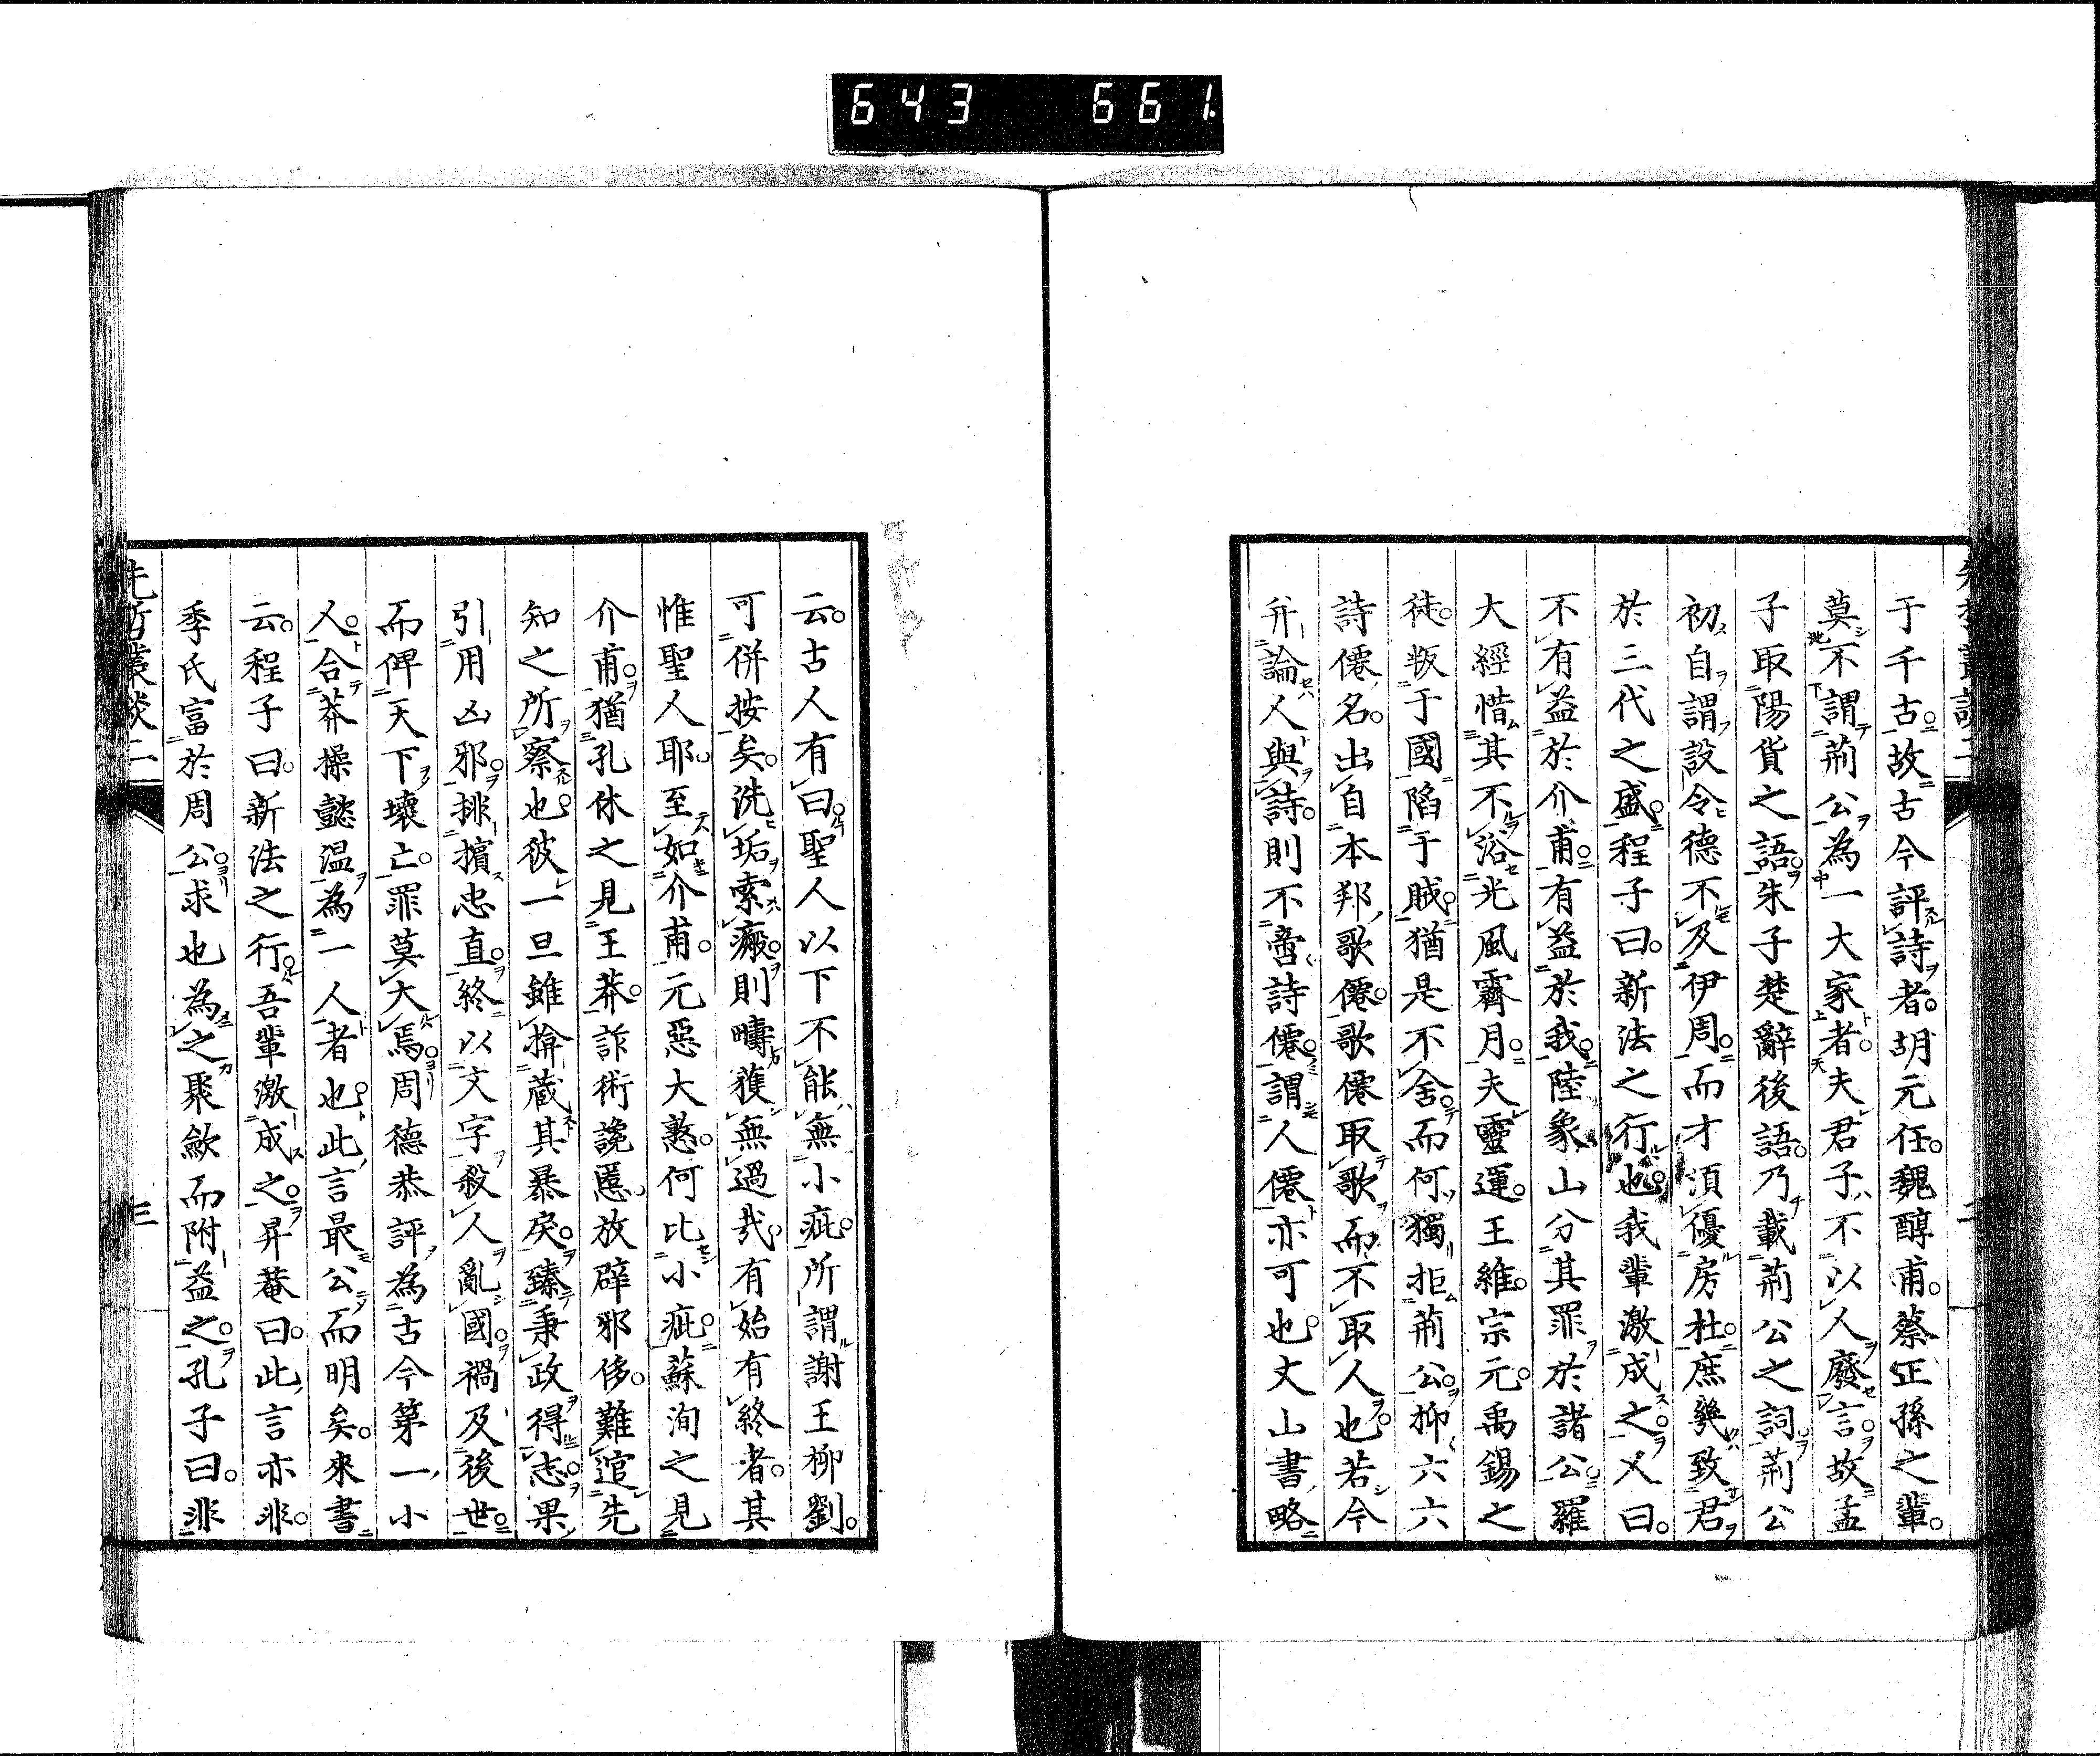 643 661
于千古。故古今評詩者。胡元任。魏醇甫。蔡正孫之輩。
莫不謂荊公為一大家者。夫君子不以人廢言。故孟
子取陽貨之語。朱子楚辭後語。乃載荊公之詞。荊公
初自謂設令德不及伊周。而才須優房杜。庶幾致君
於三代之盛。程子曰。新法之行也。我輩激成之。又曰。
不有益於介甫。有益於我。陸象山分其罪於諸公。羅
大經惜其不浴光風霽月。夫靈運。王維。宗元。禹錫之
徒。叛于國陷于賊。猶是不舍。而何獨拒荊公。抑六六
詩僊名。出自本邦歌僊。歌僊取歌而不取人也。若今
并論人與詩。則不啻詩僊。謂人僊亦可也。丈山書略
云。古人有曰。聖人以下不能無小疵。所謂謝王柳劉。
可併按矣。洗垢索瘢。則疇獲無過哉。有始有終者。其
惟聖人耶。至如介甫。元惡大憝。何比小疵。蘇洵之見
介甫。猶孔休之見王莽。詐術讒慝。放辟邪侈。難逭先
知之所察也。彼一旦雖揜藏其暴戾。臻秉政得志。果
引用凶邪。排擯忠直。終以文字殺人亂國。禍及後世。
而俾天下壞亡。罪莫大焉。周德恭評為古今第一小
人。合莽操懿溫為一人者也。此言最公而明矣。來書
云。程子曰。新法之行。吾輩激成之。昇菴曰。此言亦非。
季氏富於周公。求也為之聚斂而附益之。孔子曰。非
先哲叢談二
三